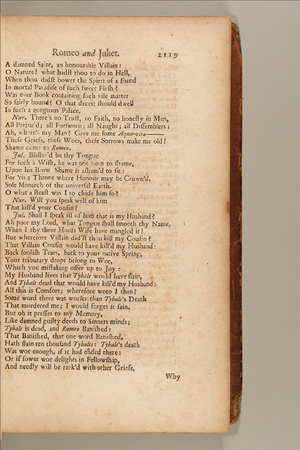 Romeo and Juliet. 2119
A damned Saint, an honourable Villain:
O Nature! what hadst thou to do in Hell,
When thou didst bower the Spirit of a Fiend
In mortal Paradise of such sweet Flesh?
Was ever Book containing such vile matter
So fairly bound? O that deceit should dwell
In such a gorgeous Palace.
Nur. There's no Trust, no Faith, no honesty in Men,
All Perjur'd; all Forsworn; all Naught; all Dissemblers;
Ah, where's my Man? Give me some Aqua-vitæ——
These Griefs, these Woes, these Sorrows make me old!
Shame come to Romeo.
Jul. Blister'd be thy Tongue
For such a Wish, he was not born to shame,
Upon his Brow Shame is asham'd to sit:
For 'tis a Throne where Honour may be Crown'd,
Sole Monarch of the universal Earth.
O what a Beast was I to chide him so?
Nur. Will you speak well of him
That kill'd your Cousin?
Jul. Shall I speak ill of him that is my Husband?
Ah poor my Lord, what Tongue shall smooth thy Name,
When I thy three Hours Wife have mangled it!
But wherefore Villain did'st thou kill my Cousin?
That Villain Cousin would have kill'd my Husband:
Back foolish Tears, back to your native Spring,
Your tributary drops belong to Woe,
Which you mistaking offer up to Joy:
My Husband lives that Tybalt would have slain,
And Tybalt dead that would have kill'd my Husband;
All this is Comfort; wherefore weep I then?
Some word there was worser than Tybalt's Death
That murdered me; I would forget it fain,
But oh it presses to my Memory,
Like damned guilty deeds to Sinners minds;
Tybalt is dead, and Romeo Banished:
That Banished, that one word Banished,
Hath slain ten thousand Tybalts: Tybalt's death
Was woe enough, if it had ended there:
Or if sower woe delights in Fellowship,
And needly will be rank'd with other Griefs,
Why